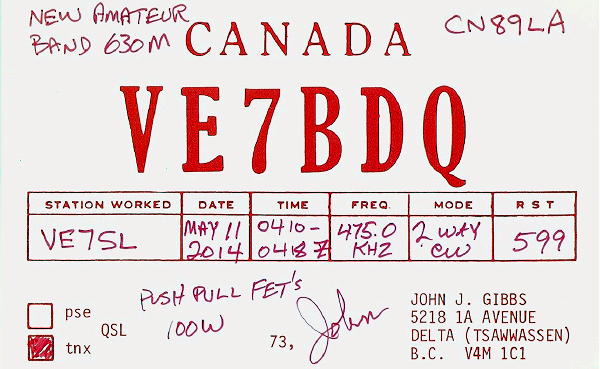 NEW AMATEUR
BAND 630M
CANADA
CN89LA
VE7BDQ
STATION WORKED DATE TIME FREQ. MODE RST
VE7SL MAY 11 2014 0410-0418 Z 475.0 KHZ 2 WAY CW 599
PUSH PULL FET's
100W
pse
QSL
tnx
73, John
JOHN J. GIBBS
5218 1A AVENUE
DELTA (TSAWWASSEN)
B.C. V4M 1C1